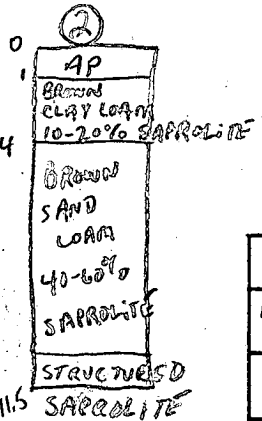 2
0
AP
1
BROWN
CLAY LOAM
10-20% SAPROLITE
4
BROWN
SAND
LOAM
40-60%
SAPROLITE
STRUCTURED
11.5 SAPROLITE